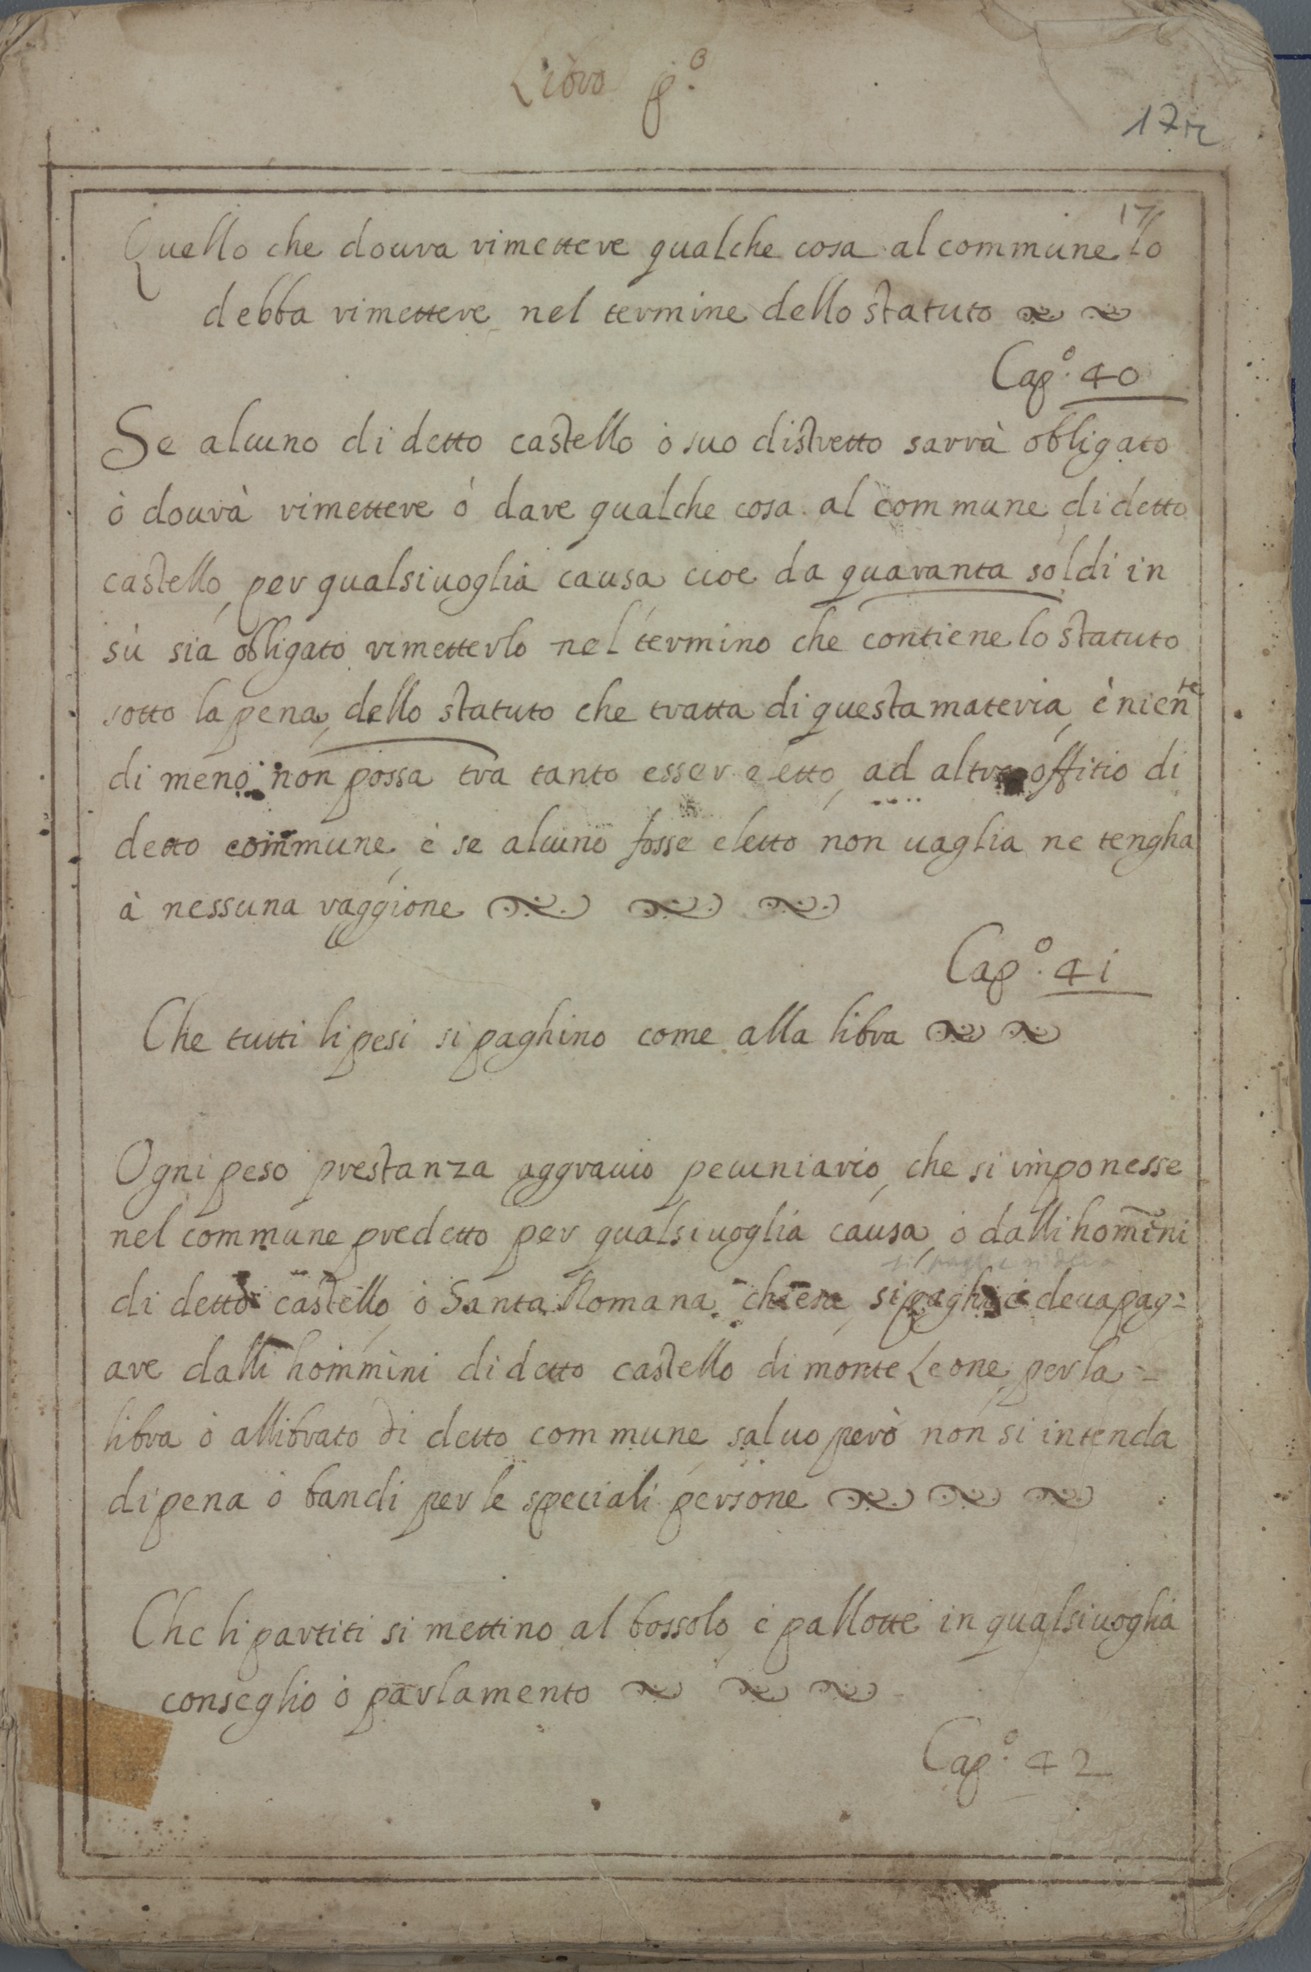 Libro p.º
17r
17
Quello che doura rimettere qualche cosa al commune lo
debba rimettere nel termine dello statuto
Cap.º 40
Se alcuno di detto castello ò suo distretto sarrà obligato
ò dourà rimettere ó dare qualche cosa al commune di detto
castello per qualsiuoglia causa cioe da quaranta soldi in
sù sia obligato rimetterlo nel termino che contiene lo statuto
sotto la pena dello statuto che tratta di questa materia è nien.te
di meno non possa tra tanto esser eletto ad altro offitio di
detto commune è se alcuno fosse eletto non uaglia ne tengha
à nessuna raggione
Cap.º 41
Che tutti li pesi si paghino come alla libra
Ogni peso prestanza aggrauio pecuniario che si imponesse
nel commune predetto per qualsiuoglia causa ò dalli homini
di detto castello ò Santa Romana chiesa si paghi è deua pag=
are dalli hommini di detto castello di monte Leone per la =
libra ò allibrato di detto commune saluo però non si intenda
di pena ò bandi per le speciali persone
Che li partiti si mettino al bossolo è pallotte in qualsiuoglia
conseglio ò parlamento
Cap.º 42